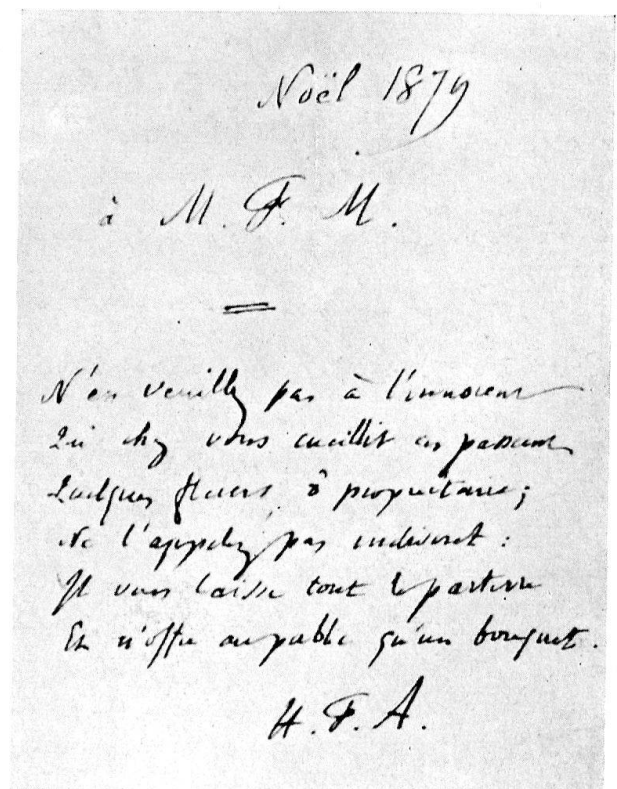 Noël 1879
à M. F. M.
N'en veuillez pas à l'innocent
Qui chez vous cueillit en passant
Quelques fleurs, ô propriétaire ;
Ne l'appelez pas indiscret :
Il vous laisse tout le parterre
Et n'offre au public qu'un bouquet.
H. F. A.